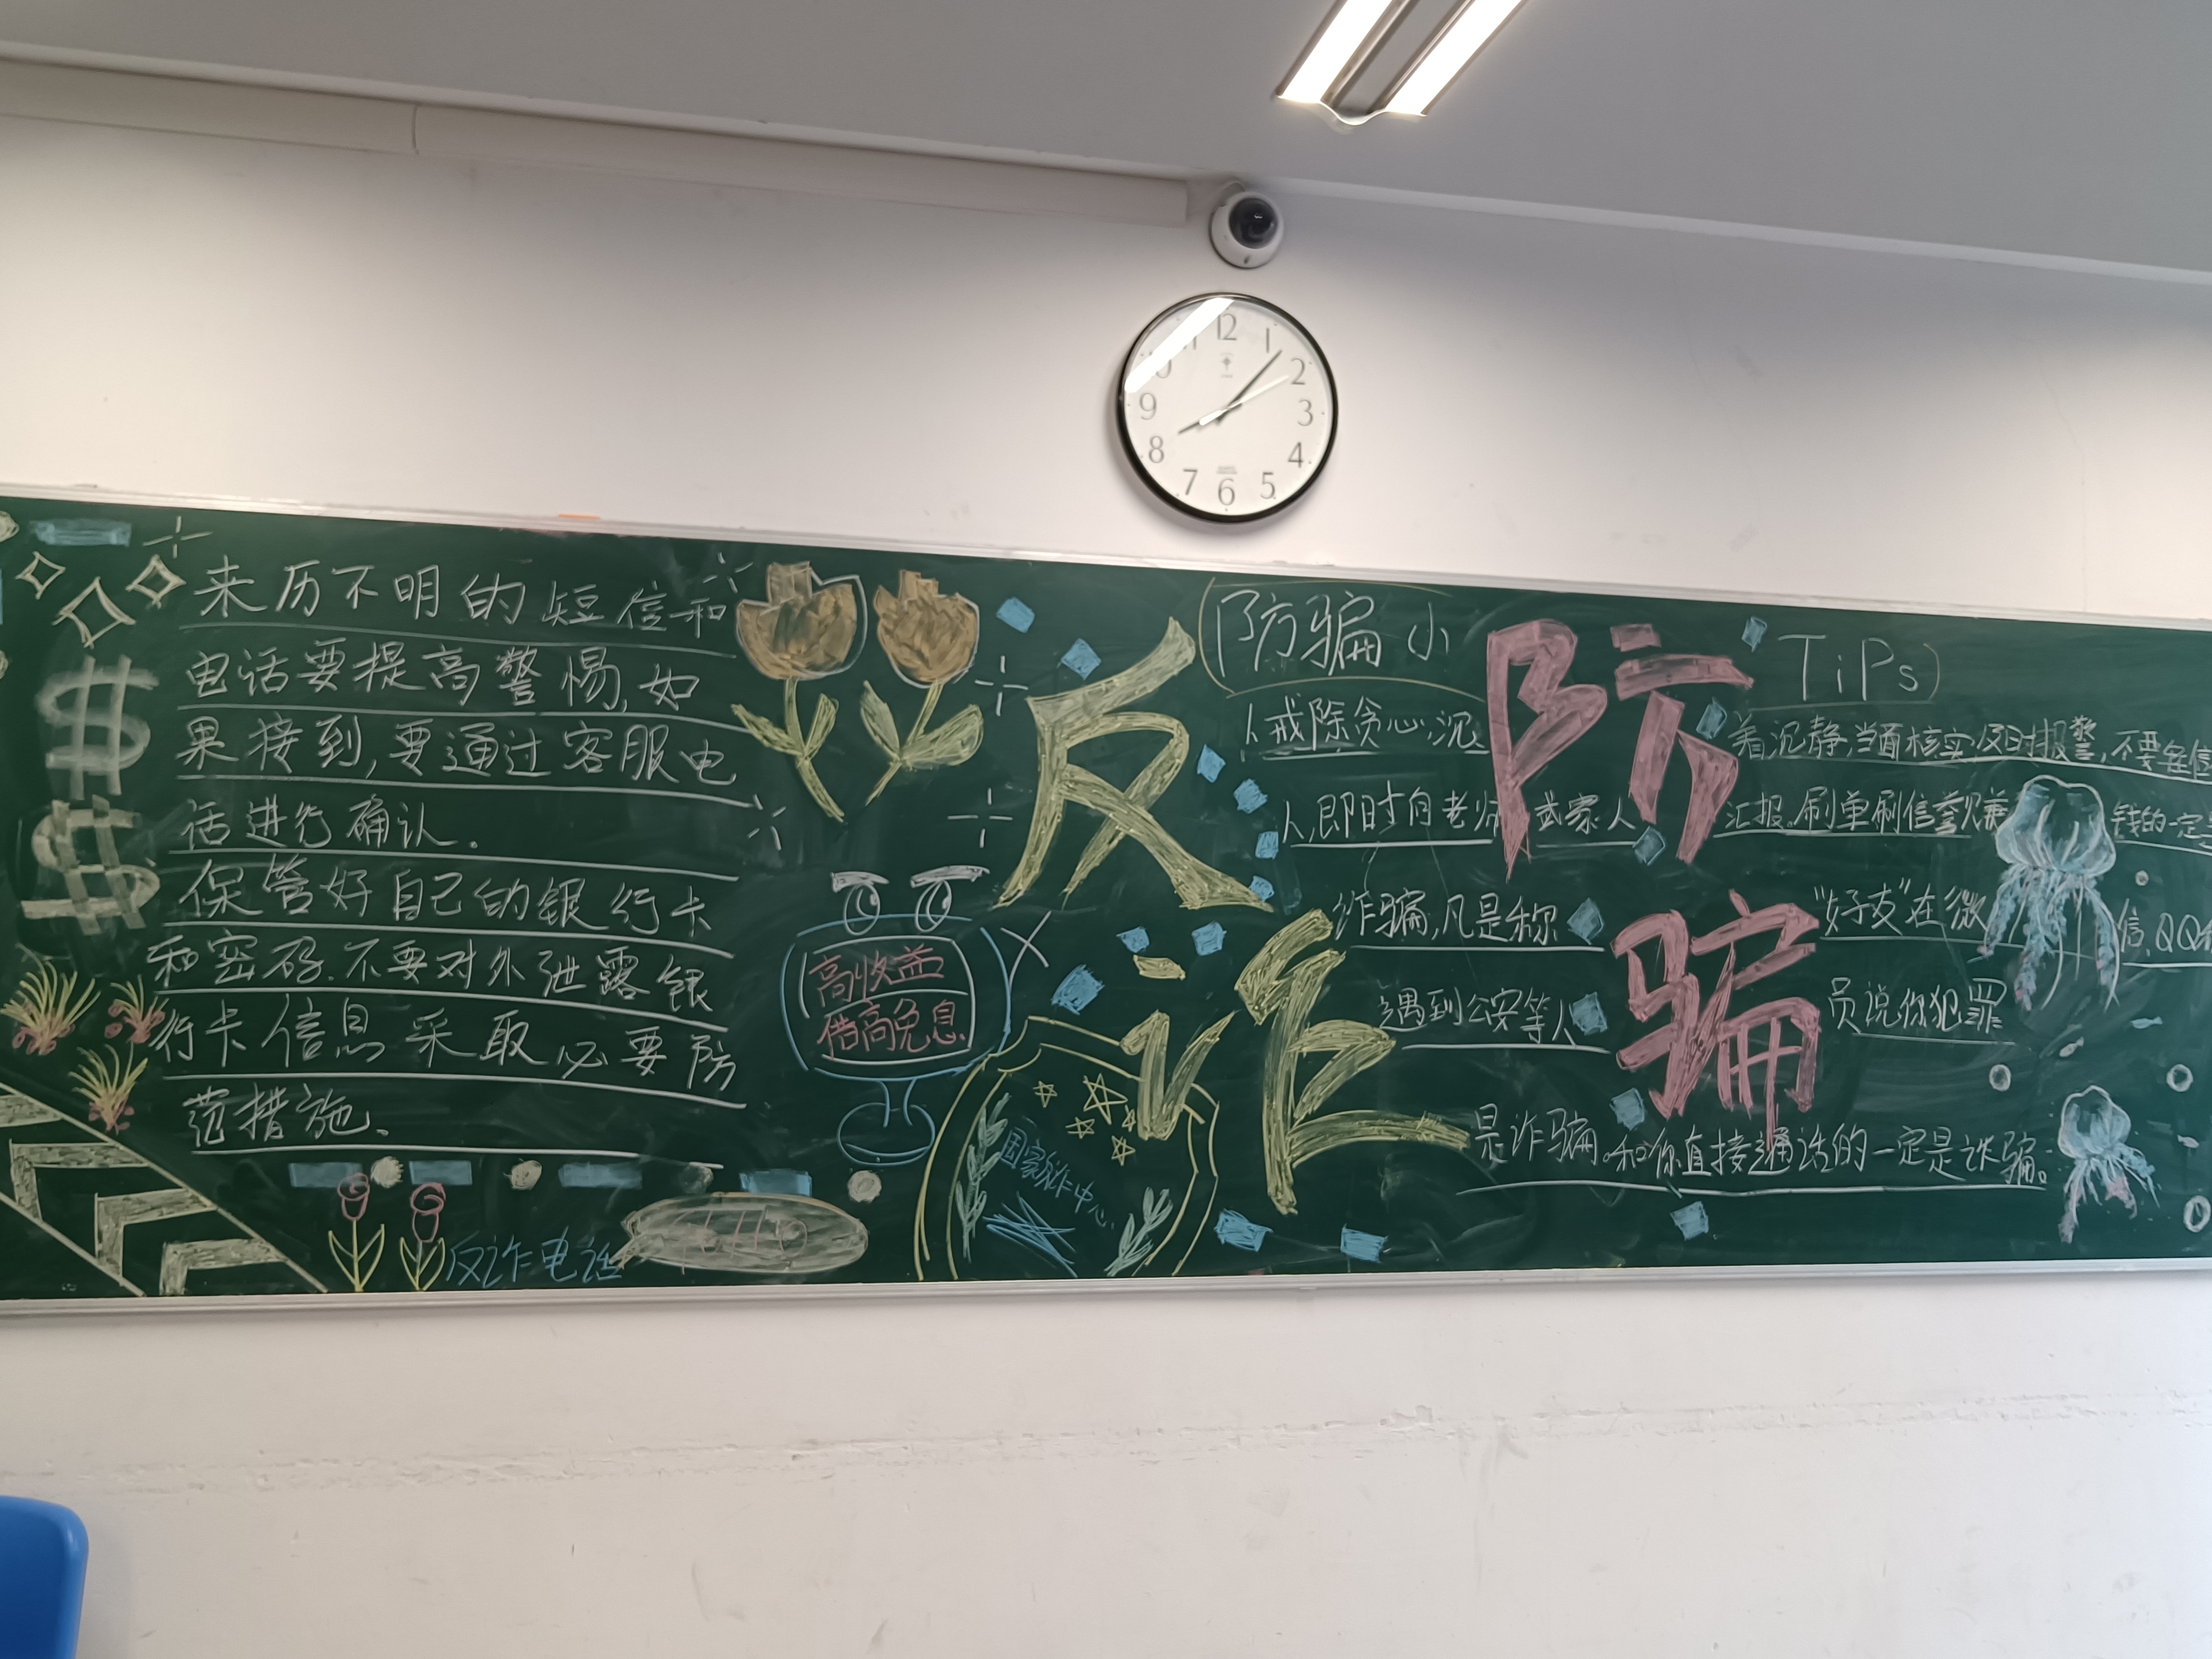 12
1
2
3
4
5
6
7
8
9
来历不明的短信和
电话要提高警惕,如
果接到,要通过客服电
话进行确认.
保管好自己的银行卡
和密码.不要对外泄露银
行卡信息采取必要防
范措施、
反诈电话
高收益
借高免息
国家诈中心
反诈
防骗
防骗小 TiPs
1、戒除贪心、沉着沉静,当面核实,及时报警,不要轻信
人,即时向老师或家人汇报.刷单刷信誉赚钱的一定
诈骗,凡是称“好友”在微信、QQ
遇到公安等人员说你犯罪
是诈骗。和你直接通话的一定是诈骗。